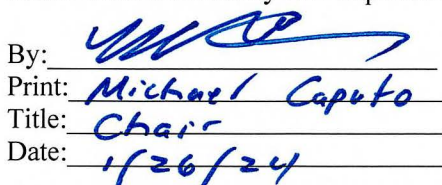 By:
Print: Michael Caputo
Title: Chair
Date: 1/26/24